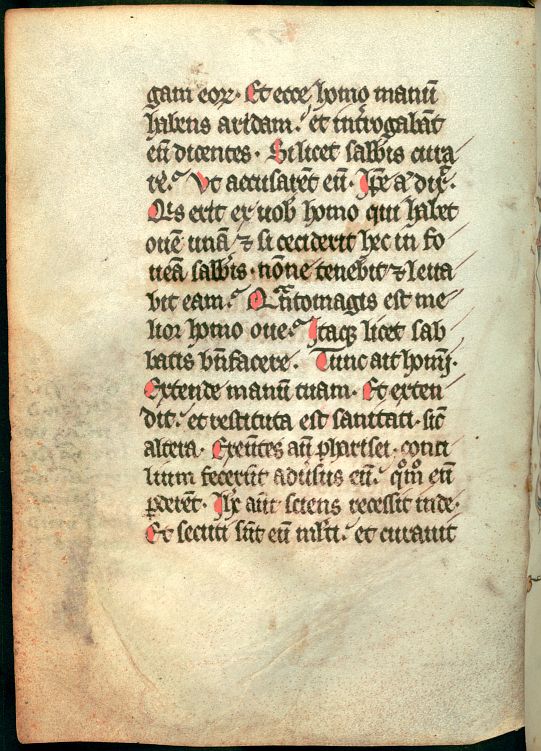 gam eoꝝ. Et ecce homo manū
habens aridam. et int̾rogabāt
eū dicentes. Si licet salb̄is cura
re. Vt accusarēt eū. Ip̄e aͭ dix̄.
Qͥs erit ex uob̄ homo qui habet
ouē unā ⁊ si ceciderit hec in fo
ueā salb̄is. nōne tenebit ⁊ leua
bit eam. Qͣntomagis est me
lior homo oue. Itaqꝫ licet sab
batis bn̄facere. Tunc ait homī.
Extende manū tuam. Et exten
dit. et restituta est sanitati. sic̄
altera. Exeūtes aū pharisei. conci
lium fecerūt adūsus eū. qͦmͦ eū
ꝑderēt. Ih̄c aūt sciens recessit inde.
Et secuti sūt eū ml̄ti. et curauit